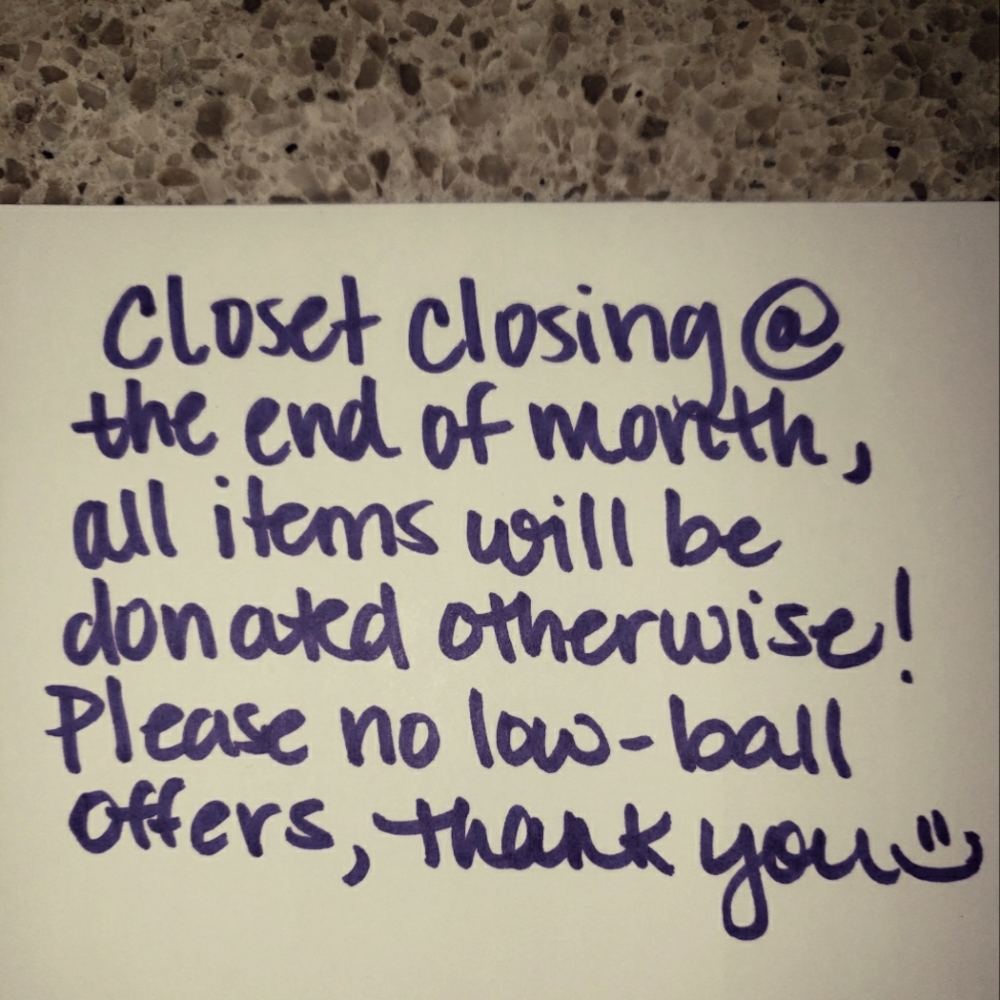 Closet closing @
the end of month,
all items will be
donated otherwise!
Please no low-ball
offers, thank you